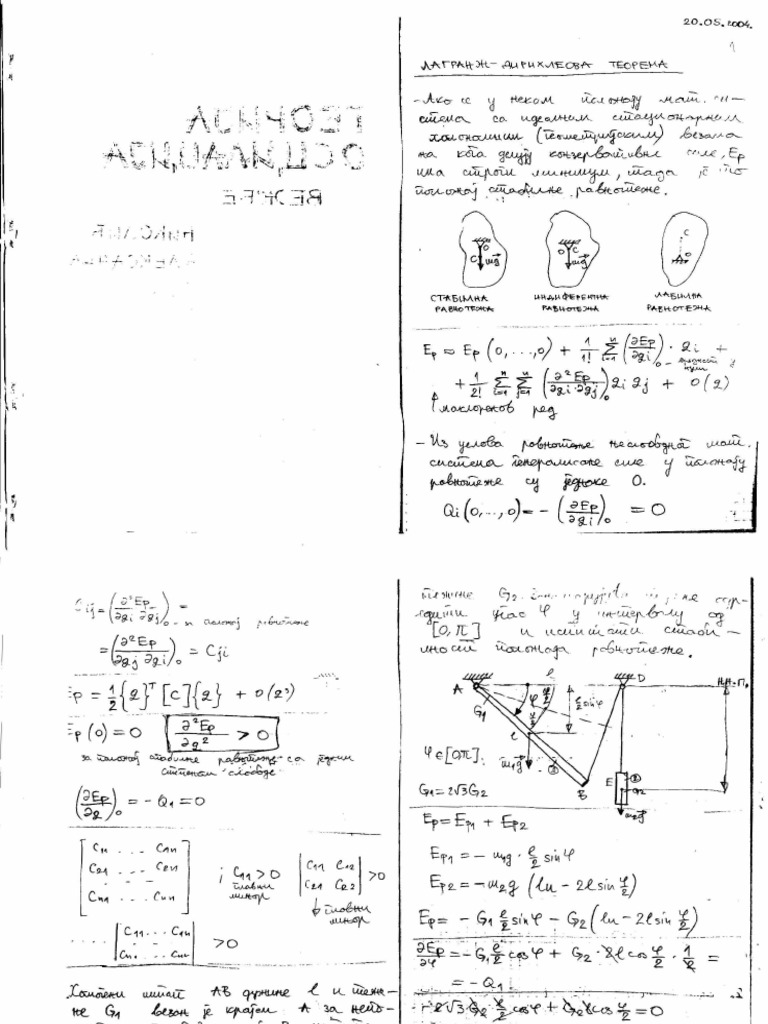 ТЕОРИЈА
ОСЦИЛАЦИЈА
ВЕЖБЕ
НИКОЛИЋ
АЛЕКСАНДРА
20.05.2004.
1
ЛАГРАНЖ-ДИРИХЛЕОВА ТЕОРЕМА
-Ако се у неком положају мат. си-
стема са идеалним стационарним
холономним (геометријским) везама
на кога делују конзервативне силе, Ep
има строги минимум, тада је то
положај стабилне равнотеже.
O C mg
O C mg
C O
СТАБИЛНА РАВНОТЕЖА
ИНДИФЕРЕНТНА РАВНОТЕЖА
ЛАБИЛНА РАВНОТЕЖА
Ep = Ep (0,...,0) + 1/1! Σ(i=1..n) (∂Ep/∂qi)₀ · qi +
+ 1/2! Σ(i=1..n) Σ(j=1..n) (∂²Ep/∂qi·∂qj)₀ qi qj + O(2)
маклоренов ред
- Из услова равнотеже неслободног мат.
система генералисане силе у положају
равнотеже су једнаке 0.
Qi(0,...,0) = - (∂Ep/∂qi)₀ = 0
Cij = (∂²Ep/∂qi ∂qj)₀ = у положај равнотеже
= (∂²Ep/∂qj ∂qi)₀ = Cji
Ep = 1/2 {q}ᵀ [C] {q} + O(2³)
Ep(0) = 0 ∂²Ep/∂q² > 0
за положај стабилне равнотеже са једним
степеном слободе
(∂Ep/∂q)₀ = - Q1 = 0
[C11 ... C1n
C21 ... C2n
Cn1 ... Cnn] ; C11 > 0 главни минор |C11 C12
C21 C22| > 0 главни минор
.... |C11 ... C1n
Cn1 ... Cnn| > 0
Хомогени штап AB дужине l и тежи-
не G1 везан је крајем A за непо-
тежине G2.
одити угао φ у интервалу од
[0,π] и испитати стаби-
лност положаја равнотеже.
A l D Н.Н.П.
G1 φ φ/2 l/2 sinφ
l m1g B E G2 m2g
φ∈[0,π];
G1 = 2√3 G2
Ep = Ep1 + Ep2
Ep1 = - m1g · l/2 sinφ
Ep2 = - m2g (lu - 2l sin φ/2)
Ep = - G1 l/2 sinφ - G2 (lu - 2l sin φ/2)
∂Ep/∂φ = - G1 l/2 cosφ + G2 · 2l cos φ/2 · 1/2 =
= - Q1
- 2√3 G2 l/2 cosφ + G2 l cos φ/2 = 0